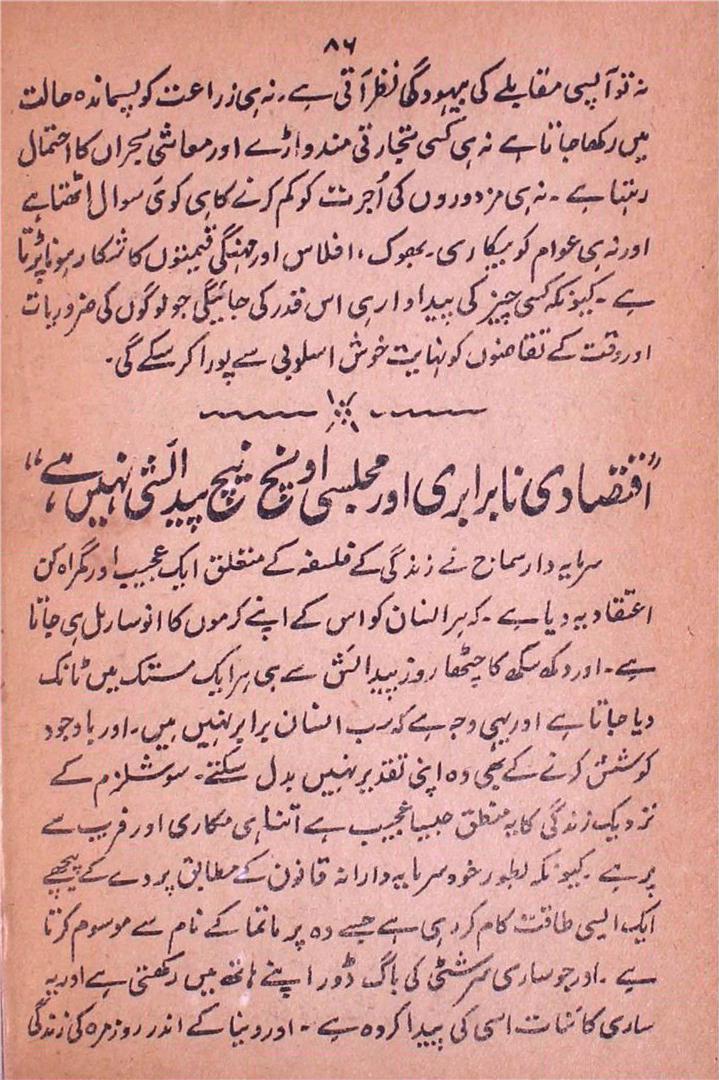 ۸۶
نہ تو آپسی مقابلے کی بیہودگی نظر آتی ہے۔ نہ ہی زراعت کو پسماندہ حالت
میں رکھا جاتا ہے نہ ہی کسی تجارتی مندواڑے اور معاشی بحران کا احتمال
رہتا ہے ۔ نہ ہی مزدوروں کی اُجرت کو کم کرنے کا ہی کوئی سوال اٹھتا ہے
اور نہ ہی عوام کو بیکاری۔ بھوک، افلاس اور مہنگی قیمتوں کا شکار ہونا پڑتا
ہے ۔ کیونکہ کسی چیز کی پیداوار ہی اس قدر کی جائیگی جو لوگوں کی ضروریات
اور وقت کے تقاضوں کو نہایت خوش اسلوبی سے پورا کر سکے گی۔
"اقتصادی نابرابری اور مجلسی اونچ نیچ پیدائشی نہیں ہے"
سرمایہ دار سماج نے زندگی کے فلسفہ کے متعلق ایک عجیب اور گمراہ کن
اعتقاد یہ دیا ہے ۔ کہ ہر انسان کو اس کے اپنے کرموں کا انوسار پل ہی جاتا
ہے۔ اور دکھ سکھ کا چٹھا روز پیدائش سے ہی ہر ایک مستک میں ٹانک
دیا جاتا ہے اور یہی وجہ ہے کہ سب انسان برابر نہیں ہیں۔ اور باوجود
کوشش کرنے کے بھی وہ اپنی تقدیر نہیں بدل سکتے۔ سوشلزم کے
نزدیک زندگی کا یہ منطق جیسا عجیب ہے اتنا ہی مکاری اور فریب سے
پر ہے ۔ کیونکہ بطور خود سرمایہ دارانہ قانون کے مطابق پردے کے پیچھے
ایک ایسی طاقت کام کر رہی ہے جسے وہ پرماتما کے نام سے موسوم کرتا
ہے ۔ اور جو ساری سرشٹی کی باگ ڈور اپنے ہاتھ میں رکھتی ہے اور یہ
ساری کائنات اسی کی پیدا کردہ ہے ۔ اور دنیا کے اندر روزمرہ کی زندگی